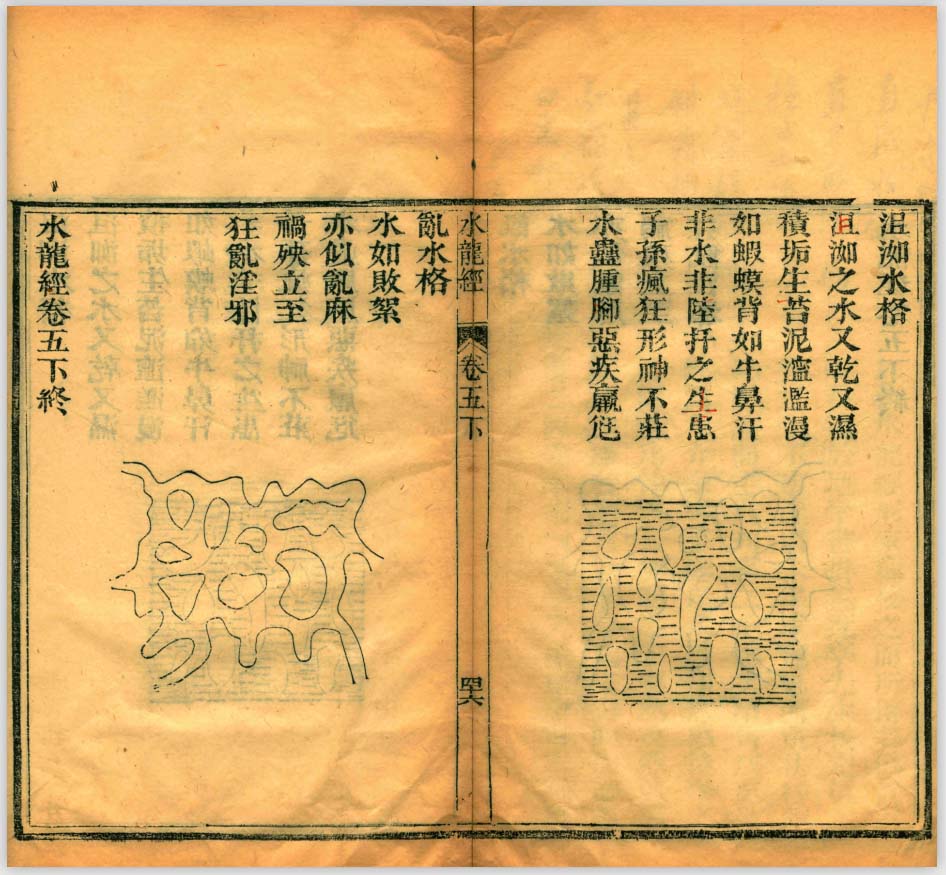 沮洳水格
沮洳之水又乾又濕
積垢生苔泥滥濫漫
如蝦蟆背如牛鼻汗
非水非陸扞之生患
子孫瘋狂形神不莊
水蠱腫脚惡疾羸尪
水龍經
卷五下
四六
亂水格
水如敗絮
亦似亂麻
禍殃立至
狂亂淫邪
水龍經卷五下終